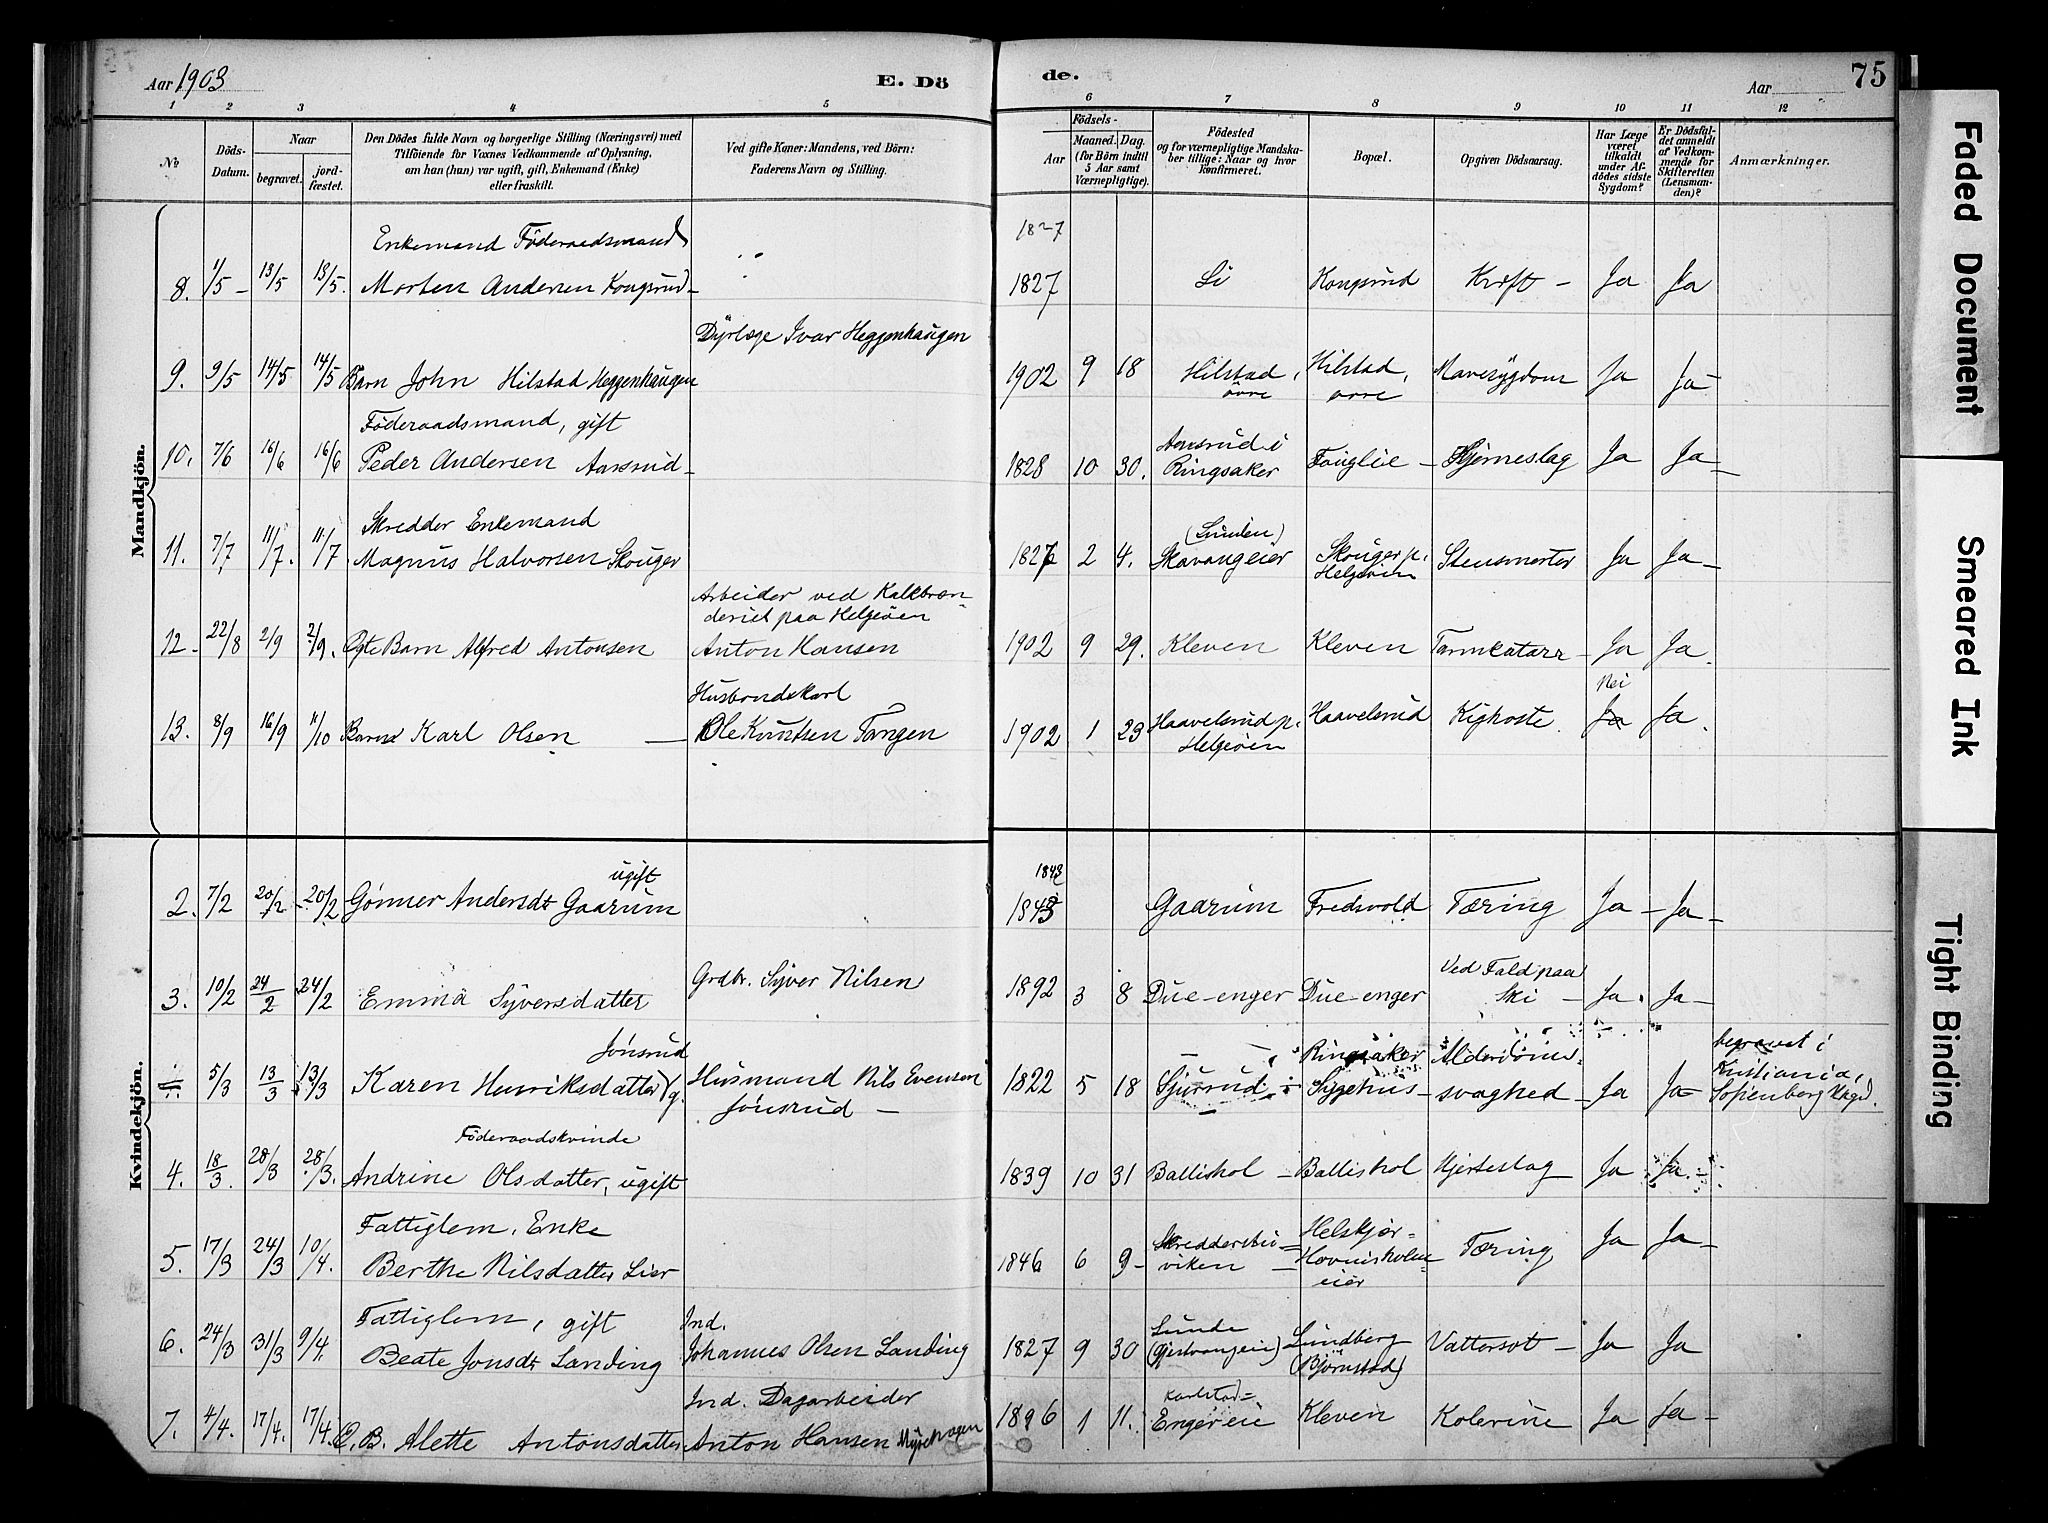 Aar 1903
E. Dö
de.
Aar
75
1 2 3 4 5 6 7 8 9 10 11 12
No
Döds-Datum.
Naar
begravet.
jord-fæstet.
Den Dödes fulde Navn og borgerlige Stilling (Næringsvei) med
Tilföiende for Voxnes Vedkommende af Oplysning,
om han (hun) var ugift, gift, Enkemand (Enke)
eller fraskilt.
Ved gifte Koner: Mandens, ved Börn:
Faderens Navn og Stilling.
Födsels-
Aar
Maaned. Dag.
(for Börn indtil
5 Aar samt
Værnepligtige).
Födested
og for værnepligtige Mandska-
ber tillige: Naar og hvor
konfirmeret.
Bopæl.
Opgiven Dödsaarsag.
Har Læge
været
tilkaldt
under Af-
dödes sidste
Sygdom?
Er Dödsfal-
det anmeldt
af Vedkom-
mende for
Skifteretten
(Lensman-
den)?
Anmærkninger.
Mandkjön.
Enkemand Föderaadsmand
8. 1/5 - 13/5 13/5. Morten Andersen Kongsrud - 1827 Li Kongsrud Kræft - Ja Ja
Dyrlæge Ivar Heggenhaugen
9. 9/5 14/5 14/5 Barn John Hilstad Heggenhaugen 1902 9 18 Hilstad, övre Hilstad, övre Mavesygdom Ja Ja -
Föderaadsmand, gift
10. 7/6 16/6 16/6 Peder Andersen Aassrud - 1828 10 30. Aassrud i Ringsaker Fouglie - Hjerneslag Ja Ja -
Skredder Enkemand
11. 7/7 11/7. 11/7 Magnus Halvorsen Skouger 1826 2 4. (Lunden) Skavangeier Skouger p. Helgöien Stensmerter Ja Ja -
Arbeider ved Kalkbræn-
deriet paa Helgöen
12. 22/8 2/9 2/9. Ægte Barn Alfred Antonsen Anton Hansen 1902 9 29. Kleven Kleven Tarmkatarr - Ja Ja.
Husbondskarl
13. 8/9 16/9 11/10 Barn Karl Olsen - Ole Knutsen Tangen 1902 1 23 Haavelsrud p. Helgöien Haavelsrud Kighoste. Nei Ja Ja.
Kvindekjön.
ugift
1843
2. 7/2 20/2 - 20/2 Gönner Andersdt Gaarum 1843 Gaarum Fredsvold Tæring Ja - Ja -
3. 10/2 24/2 24/2 Emma Syversdatter Grdbr. Syver Nilsen 1892 3 8 Due-enger Due-enger Ved Fald paa Ski - Ja. Ja -
Jönsrud
5/3 13/3 13/3 Karen Henriksdatter g. Husmand Nils Evensen Jönsrud - 1822 5 18 Sjursrud Ringsaker Sygehus - Alderdoms- svaghed - Ja Ja - begravet i Kristiania, Sofienberg Kkgd.
Föderaadskvinde
4. 18/3. 28/3 28/3. Andrine Olsdatter, ugift 1839 10 31 Ballishol - Ballishol Hjerteslag Ja Ja. -
Fattiglem, Enke
5. 17/3 24/3 10/4. Berthe Nilsdatter Lier 1846 6 9 - Skredderstu- viken - Helskjör- Hovinsholm- eier Tæring Ja Ja -
Fattiglem, gift
Ind.
6. 24/3 31/3 9/4. Beate Jonsdt Landing Johannes Olsen Landing 1827 9 30 Lunde Lundberg (Björnstad) Vattersot - Ja Ja
Ind. Dagarbeider
7. 4/4. 17/4. 17/4. E. B. Alette Antonsdatter Anton Hansen Myrehagen 1896 1 11. Karlstad- Engereie Kleven Kolerine Ja Ja -
Faded Document
Smeared Ink
Tight Binding